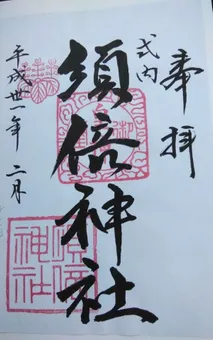 奉拝
式内
須倍神社
平成卅年二月
須倍神社